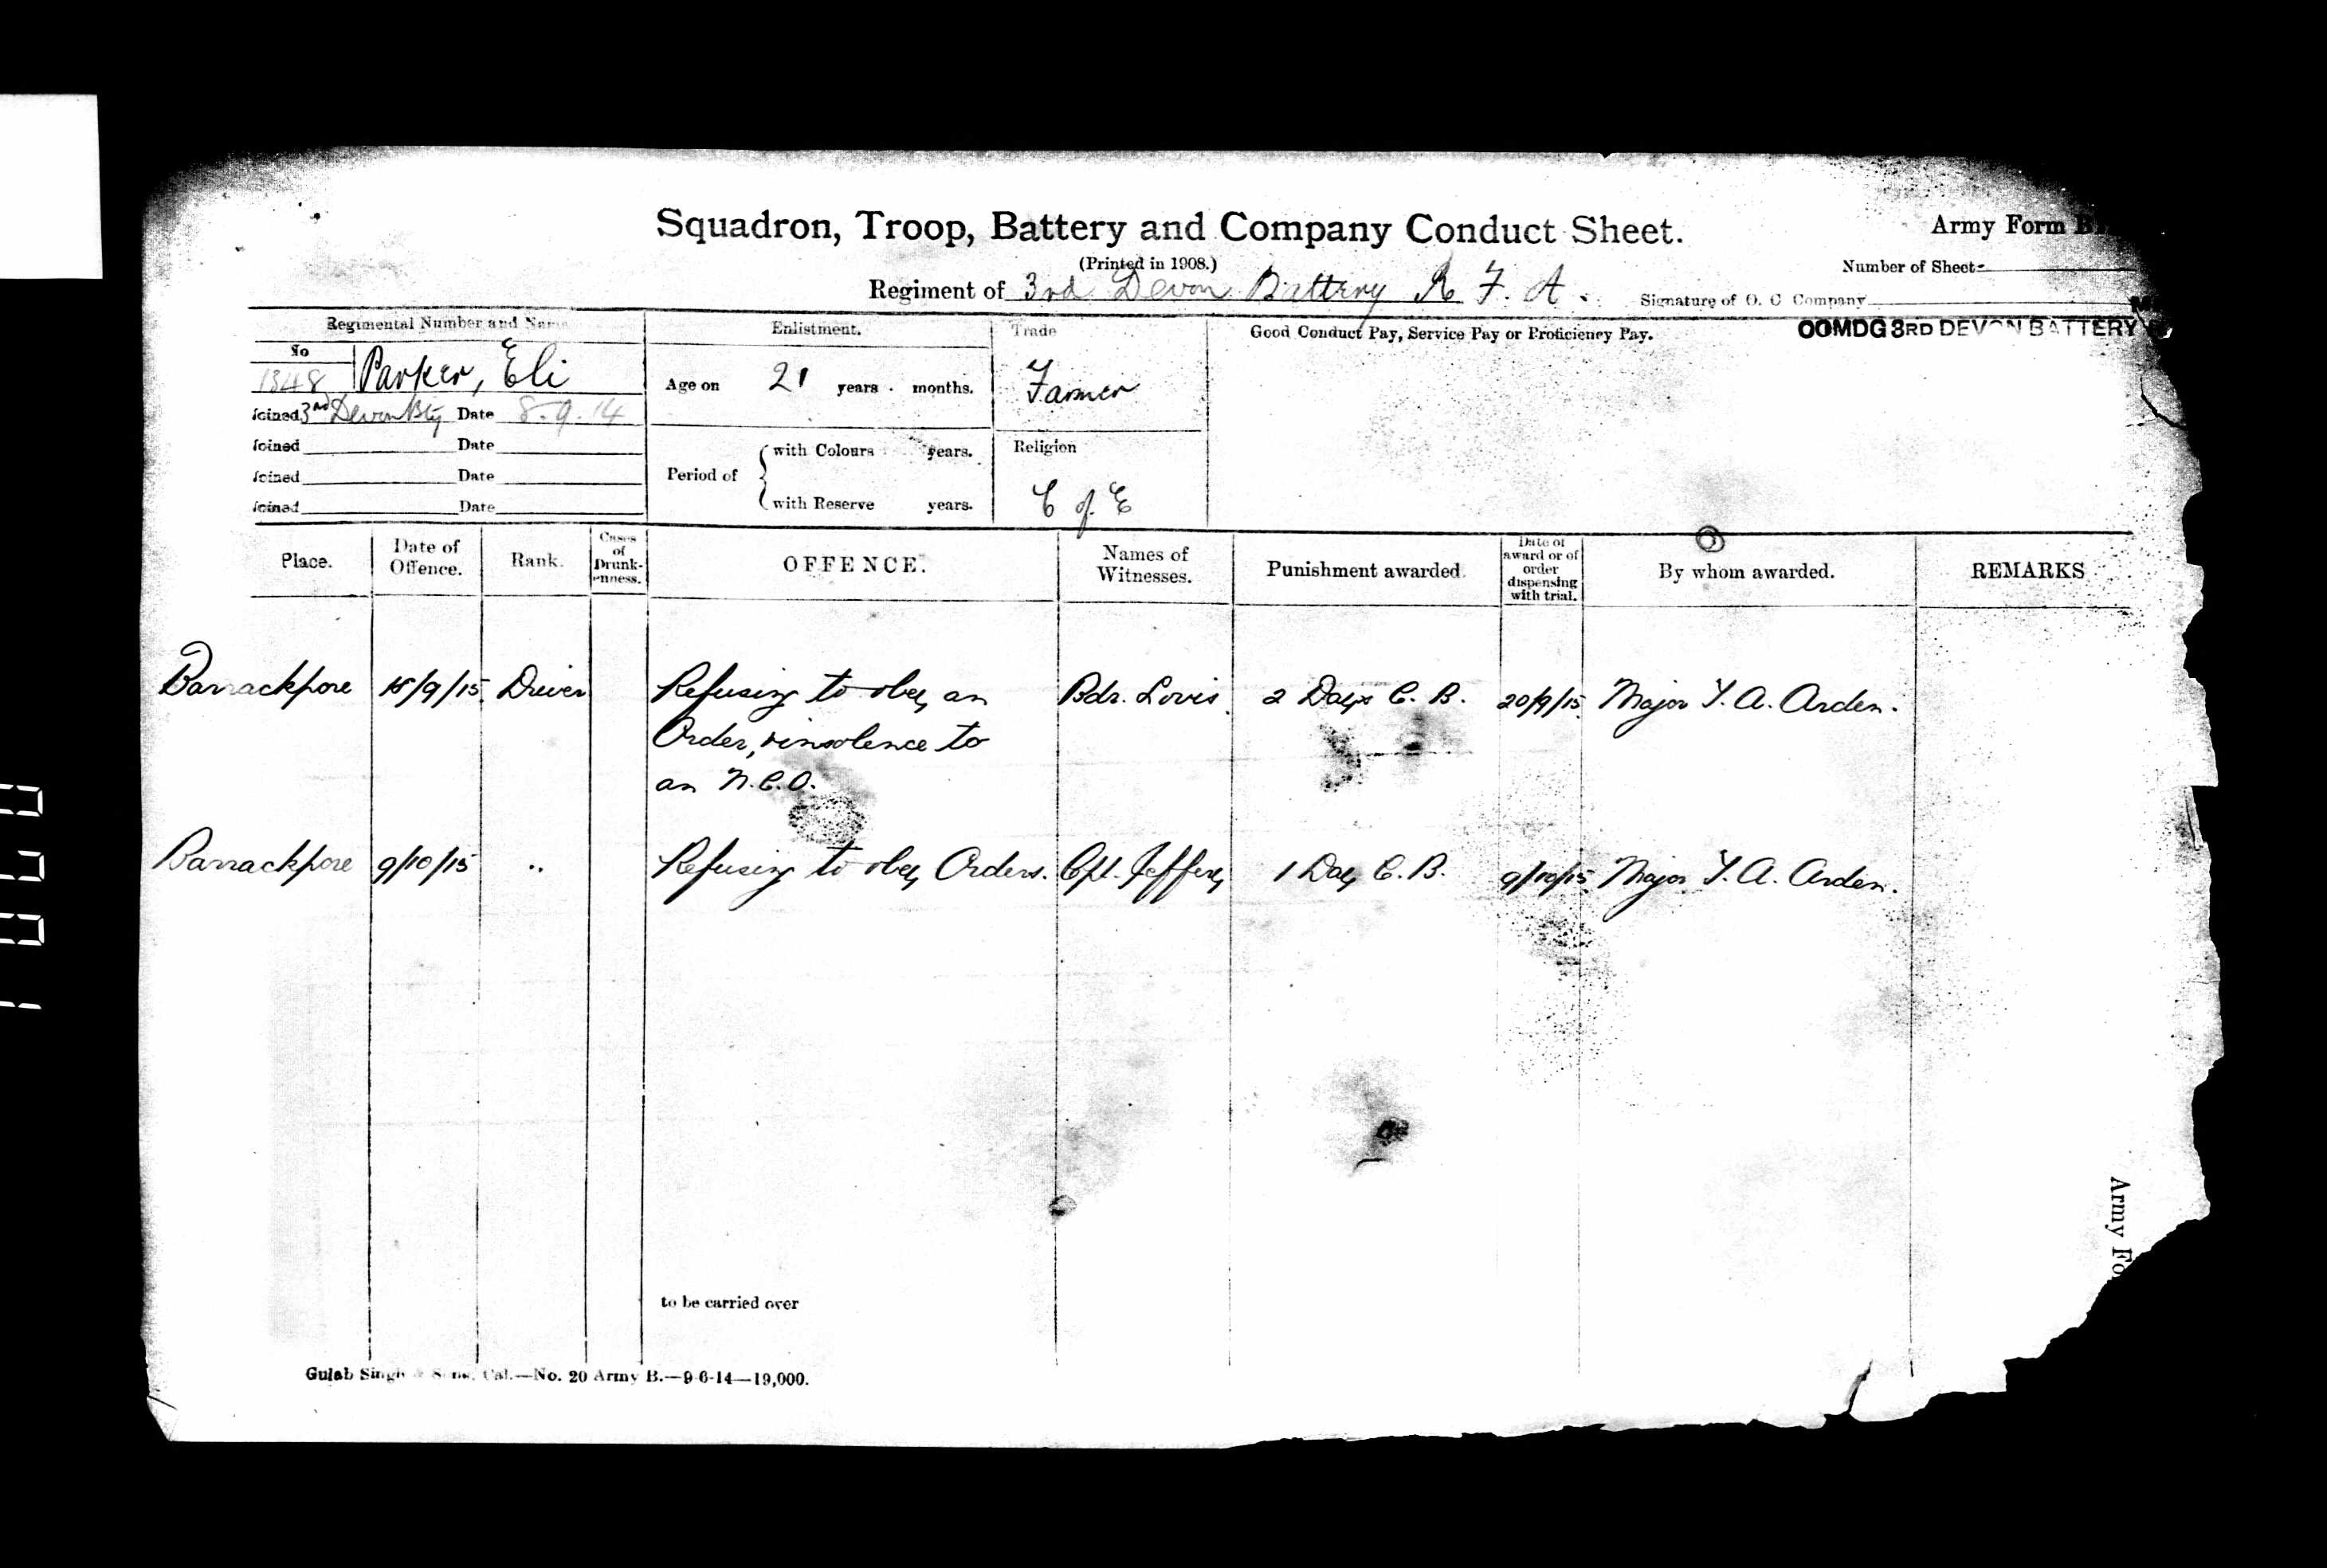 Squadron, Troop, Battery and Company Conduct Sheet.
Army Form B
(Printed in 1908.)
Number of Sheet
Regiment of 3rd Devon Battery R. F. A.
Signature of O. C Company
Regimental Number and Name
Enlistment.
Trade
Good Conduct Pay, Service Pay or Proficiency Pay.
OOMDG 3RD DEVON BATTERY
No
1348 Parker, Eli
Age on 21 years. months.
Farmer
Joined 3rd Devon Bty Date 8.9.14
Joined Date
Joined Date
Joined Date
Period of
with Colours years.
with Reserve years.
Religion
C of E
Place.
Date of Offence.
Rank.
Cases of Drunk-enness.
OFFENCE.
Names of Witnesses.
Punishment awarded.
Date of award or of order dispensing with trial.
By whom awarded.
REMARKS
Barrackpore /9/15 Driver Refusing to obey an Bdr. Lovis. 2 Days C. B. 20/9/15. Major T. A. Arden.
Order, & insolence to
an N.C.O.
Barrackpore 9/10/15 " Refusing to obey Orders. Cpl. Jeffery 1 Day C. B. 9/10/15. Major T. A. Arden.
to be carried over
Gulab Singh & Sons, Cal.—No. 20 Army B.—9-6-14—19,000.
Army Fo